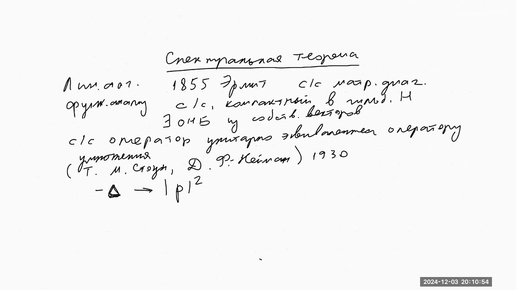 Спектральная теорема
Лин. алг. 1855 Эрмит с/с матр. диаг.
функ. анализ с/с, компактный в гильб. H
∃ ОНБ из собств. векторов
с/с оператор унитарно эквивалентен оператору
умножения
(Т. М. Стоун, Д. Ф. Нейман) 1930
-Δ → |p|²
2024-12-03 20:10:54